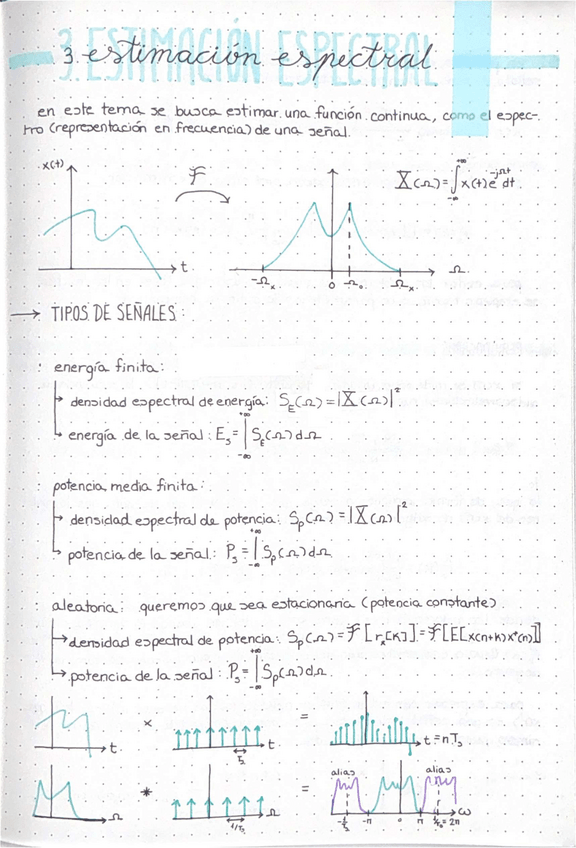 3. estimación espectral
en este tema se busca estimar una función continua, como el espec-
tro (representación en frecuencia) de una señal.
x(t)
ℱ
X(Ω)=∫_{-∞}^{+∞} x(t)e^{-jΩt}dt.
t
-Ωₓ 0 Ω₀ Ωₓ Ω
→ TIPOS DE SEÑALES:
: energía finita:
→ densidad espectral de energía: S_E(Ω)=|X(Ω)|²
→ energía de la señal: E_s=∫_{-∞}^{+∞} S_E(Ω)dΩ
: potencia media finita:
→ densidad espectral de potencia: S_p(Ω)=|X(Ω)|²
→ potencia de la señal: P_s=∫_{-∞}^{+∞} S_p(Ω)dΩ
: aleatoria: queremos que sea estacionaria (potencia constante)
→ densidad espectral de potencia: S_p(Ω)=ℱ[r_x[k]]=ℱ[E[x(n+k)x*(n)]]
→ potencia de la señal: P_s=∫_{-∞}^{+∞} S_p(Ω)dΩ.
t × T_s t = t=nT_s
alias alias
Ω * 1/T_s Ω = -π 0 π =2π ω